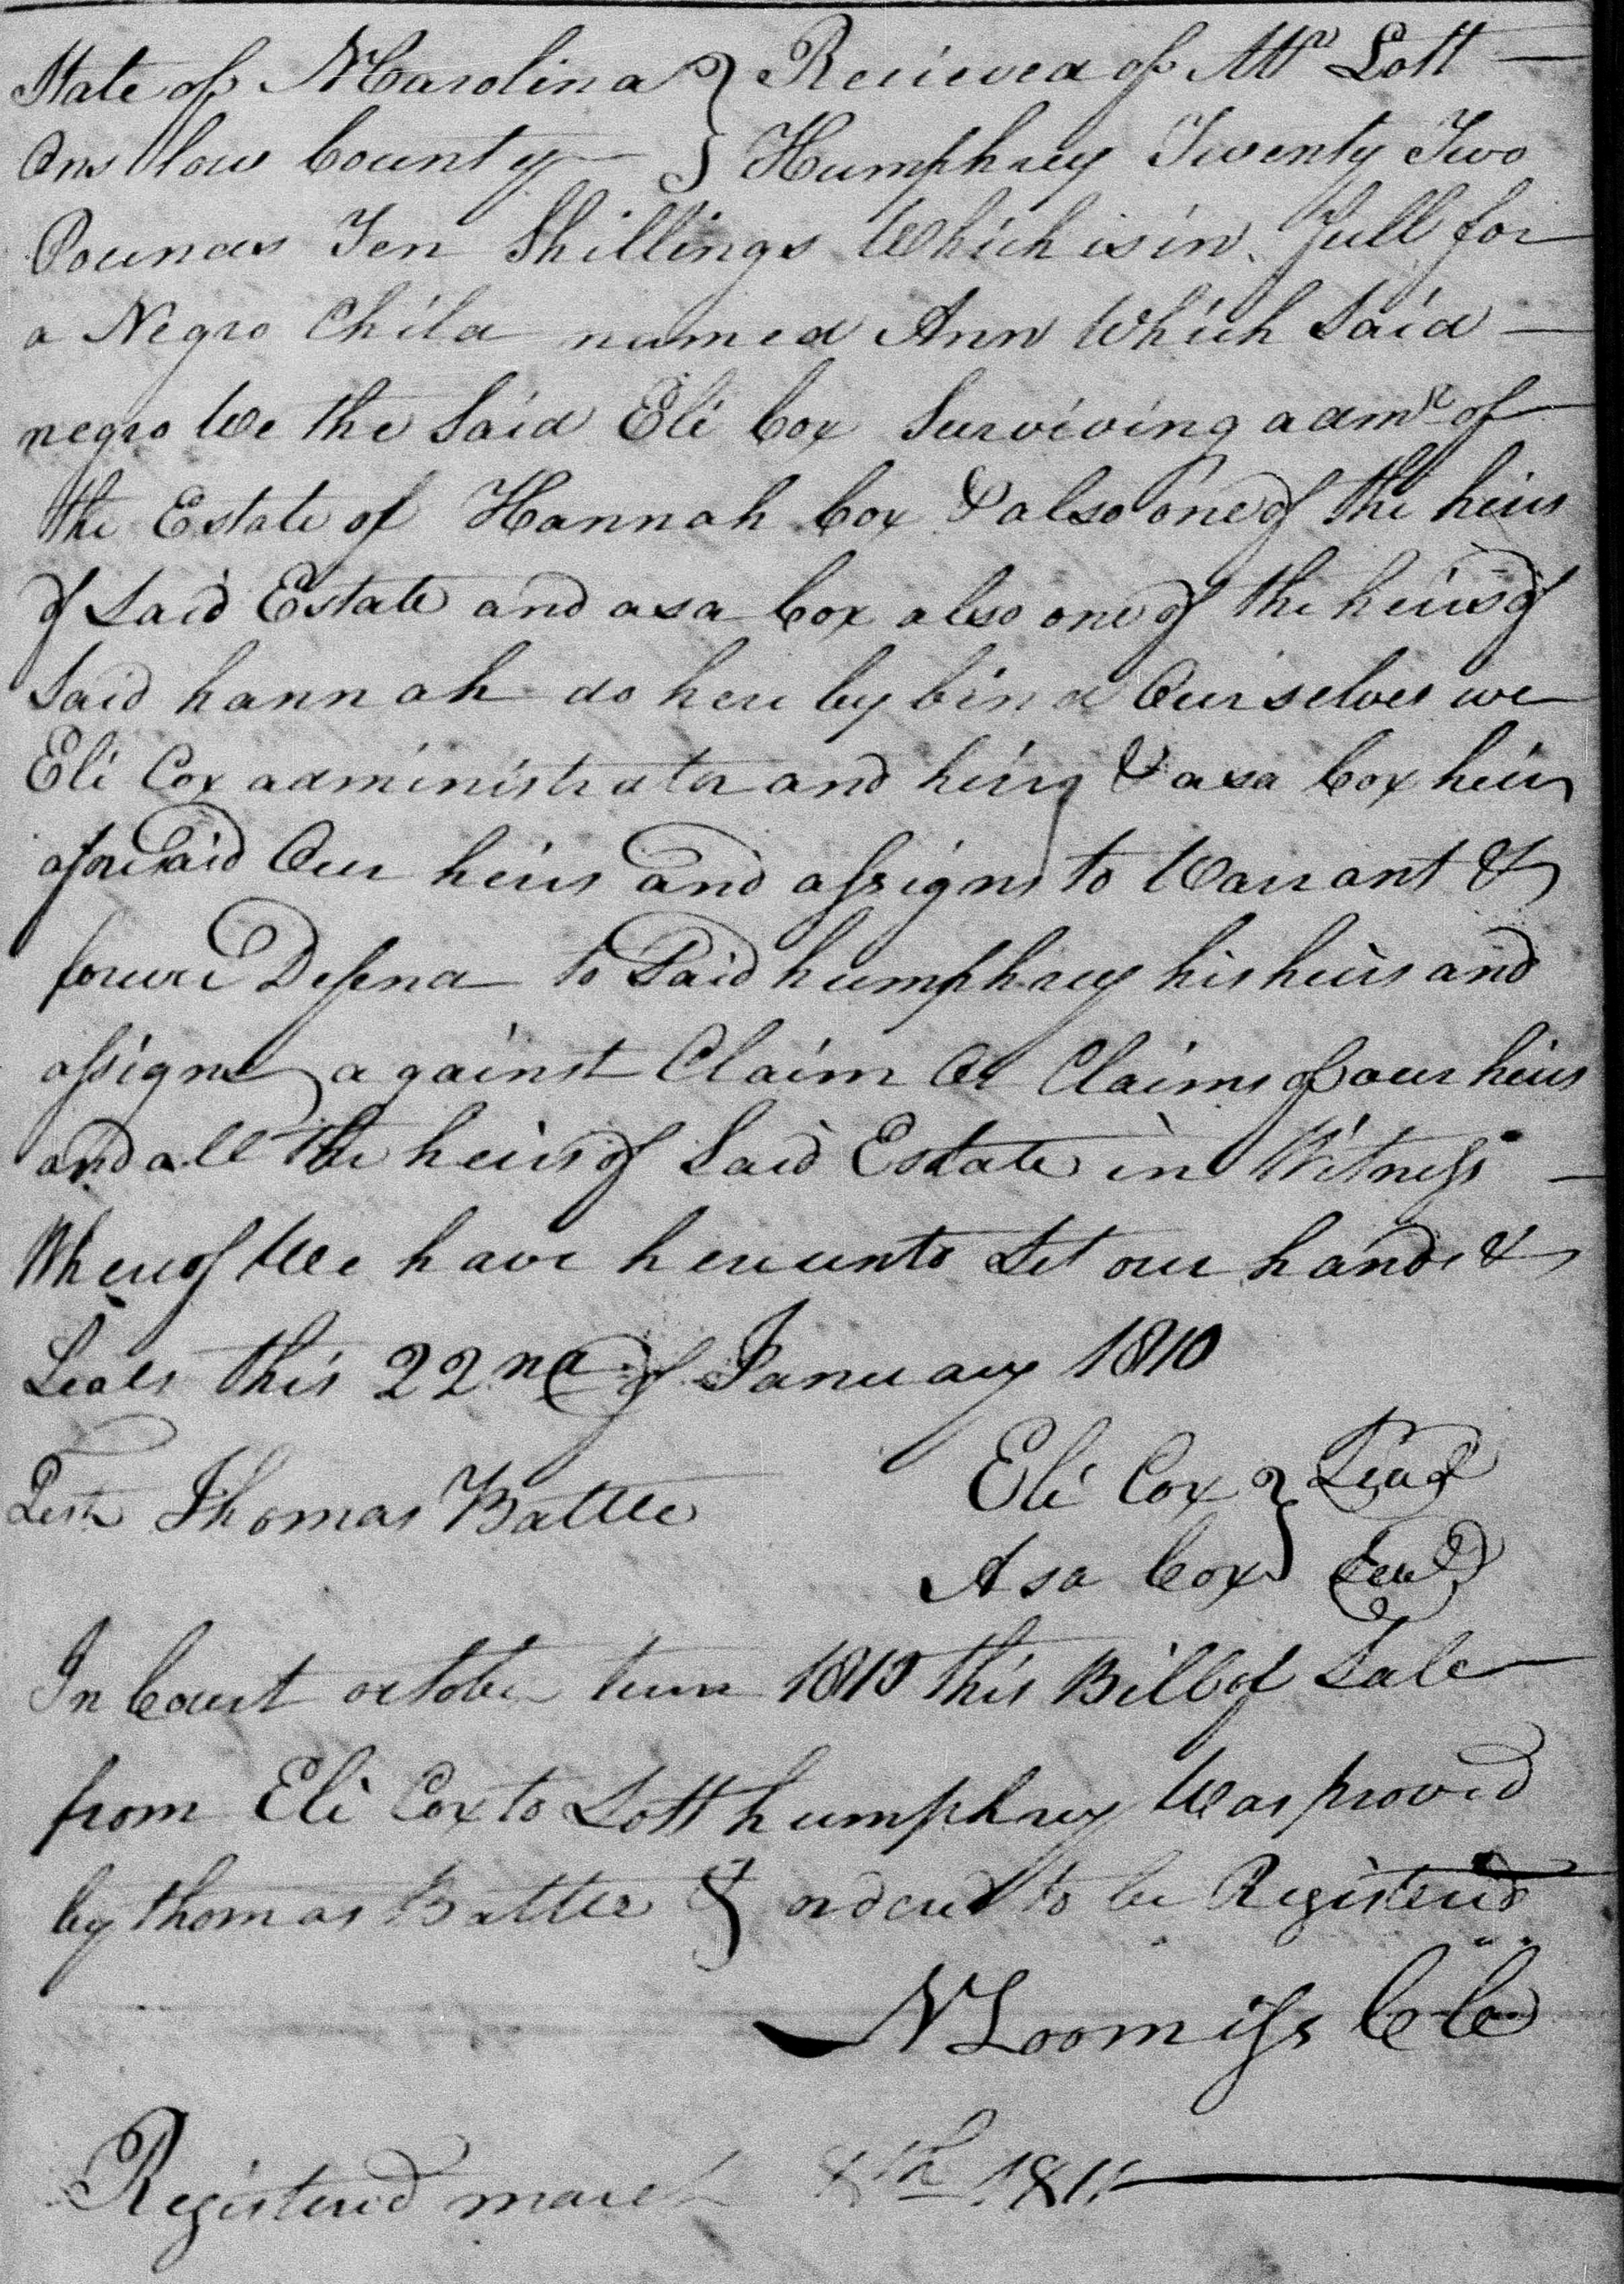 State of N Carolina } Recieved of Mr Lott
Onslow County } Humphrey Twenty Two
Pounds Ten Shillings Which is in full for
a Negro Child named Ann Which Said
negro We the Said Eli Cox Surviving admr of
the Estate of Hannah Cox & also one of the heirs
of Said Estate and asa Cox also one of the heirs of
Said hannah do here by bind Our selves we
Eli Cox administrator and heirs & asa Cox heir
aforesaid Our heirs and assigns to Warrant &
forever Defend to Said humphrey his heirs and
assigns against Claim Or Claims of our heirs
and all the heirs of Said Estate in Witness
Whereof We have hereunto Set our hands &
Seals this 22nd of January 1810
Test Thomas Battle Eli Cox } Seal
Asa Cox } Seal
In Court october term 1810 this Bill of Sale
from Eli Cox to Lott humphrey Was proved
by thomas Battle & ordered to be Registered
N Loomiss CC
Registered march 8th 1811